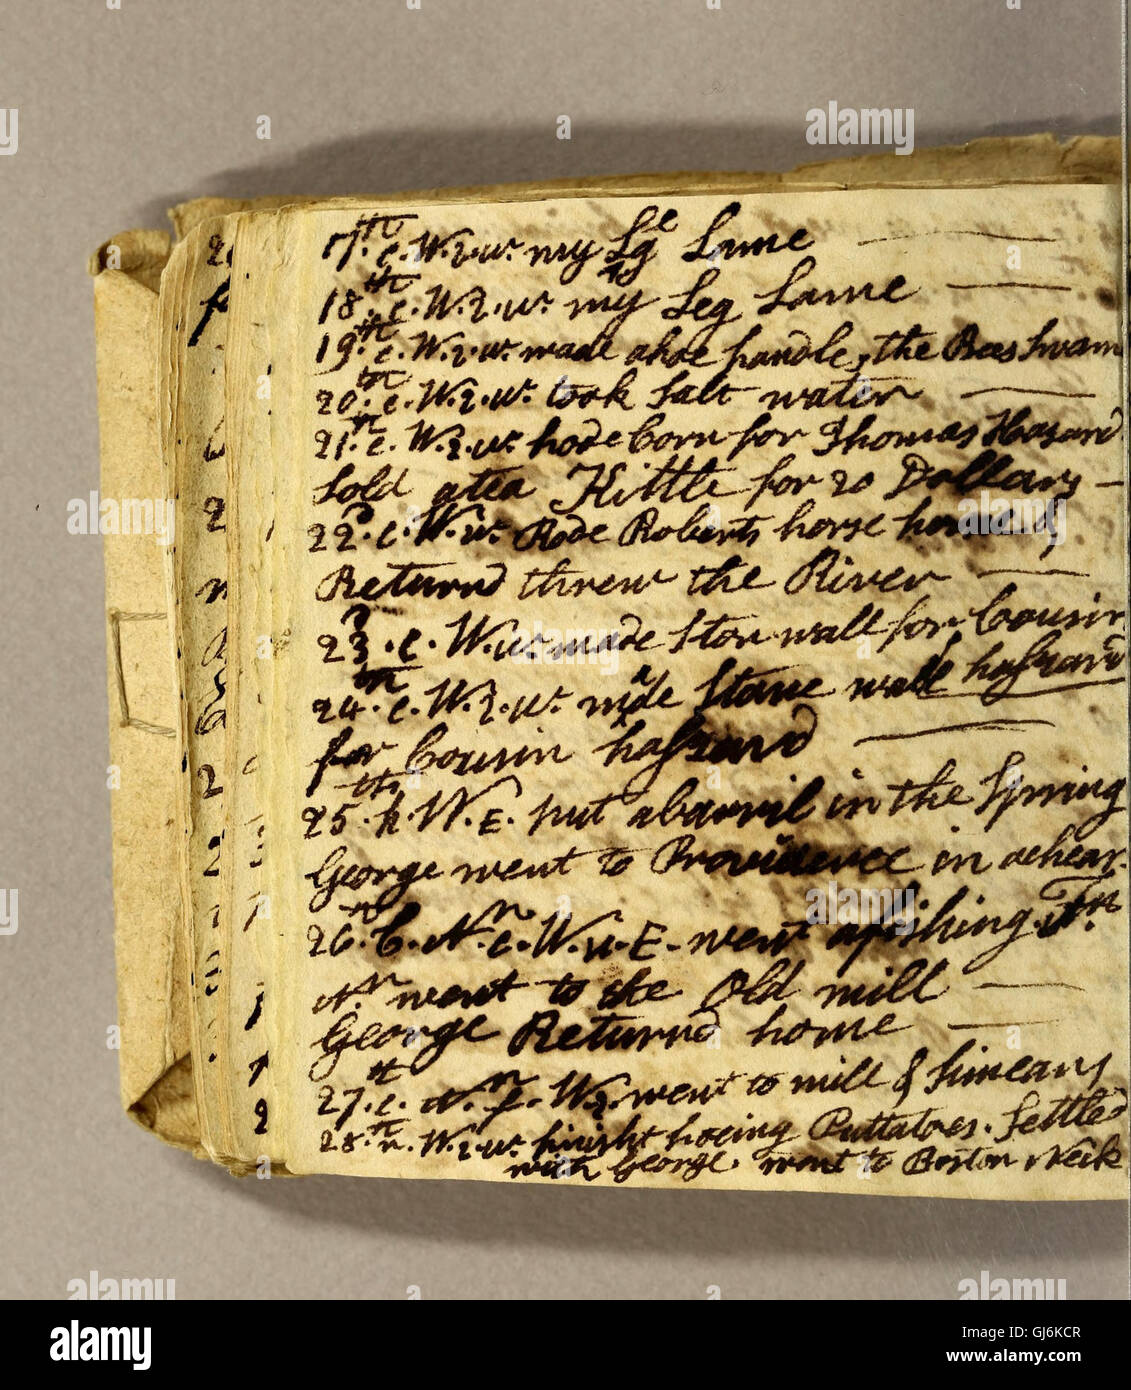 17th. c. W. 2. w. my Lge Lame
18th. c. W. 2. w. my Leg Lame
19th. c. W. 2. w. made a hoe handle, the Bees Swam
20th. c. W. 2. w. took Salt water
21th. c. W. 2. w. hode Corn for Thomas Hazard
Sold a tea Kittle for 20 Dollars
22d. c. W. w. Rode Roberts horse home &
Returnd threw the River
23d. c. W. w. made Ston wall for Cousin
hassard
24th. c. W. 2. w. made Stone wall
for Cousin hassard
25th. h. W. E. put a barril in the Spring
George went to Providence in a chear
26th. C. N. c. W. w. E. went a fishing.
went to the Old mill
George Returnd home
27th. c. W. 2. went to mill & Simeans
28th. n. W. 2. w. finisht hoeing Puttatoes. Settled
with George. went to Boston Neck
alamy
a
Image ID: GJ6KCR
www.alamy.com